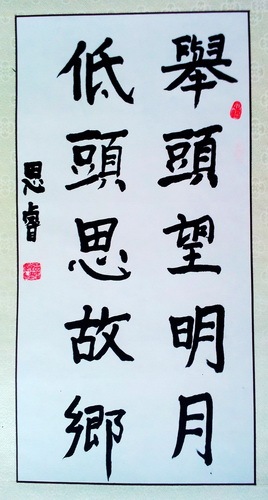 舉頭望明月
低頭思故鄉
思睿